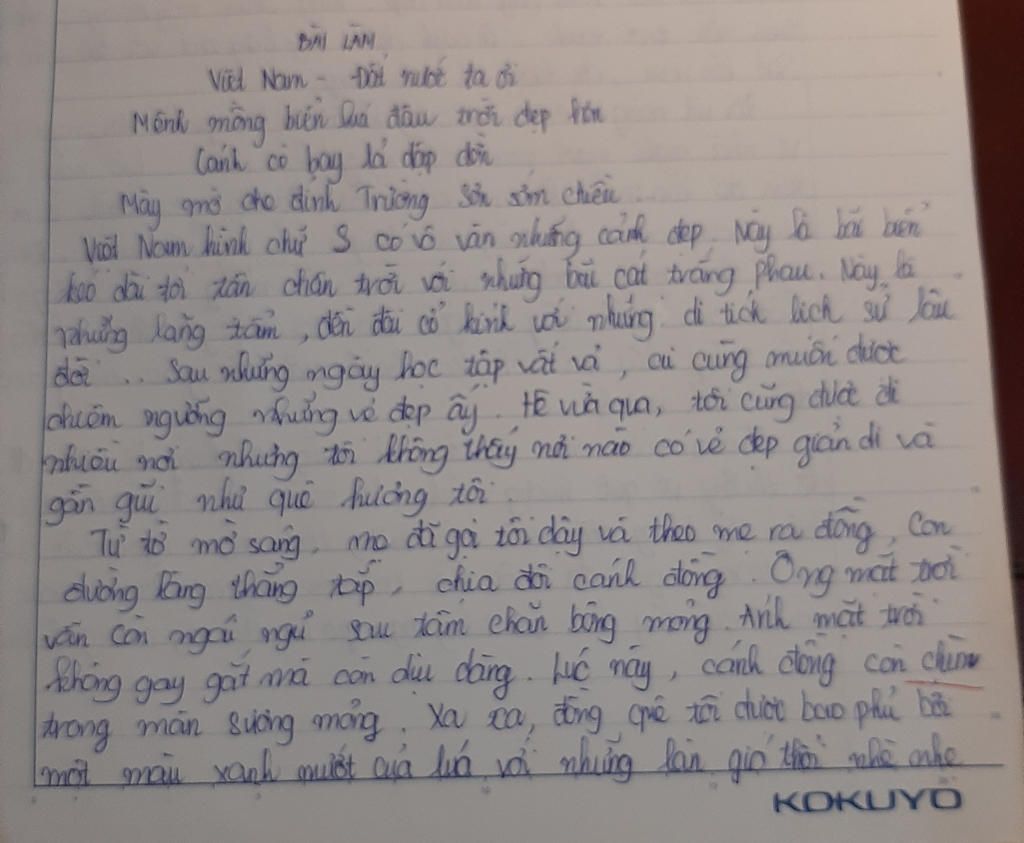 BÀI LÀM
Việt Nam - Đất nước ta ơi
Mênh mông biển lúa đâu trời đẹp hơn
Cánh cò bay lả dập dờn
Mây mờ che đỉnh Trường Sơn sớm chiều.
Việt Nam hình chữ S có vô vàn những cảnh đẹp. Này là bãi biển
kéo dài tới tận chân trời với những bãi cát trắng phau. Này là
những lăng tẩm, đền đài cổ kính với những di tích lịch sử lâu
đời... Sau những ngày học tập vất vả, ai cũng muốn được
chiêm ngưỡng những vẻ đẹp ấy. Hè vừa qua, tôi cũng được đi
nhiều nơi nhưng tôi không thấy nơi nào có vẻ đẹp giản dị và
gần gũi như quê hương tôi.
Từ tờ mờ sáng, mẹ đã gọi tôi dậy và theo mẹ ra đồng. Con
đường làng thẳng tắp, chia đôi cánh đồng. Ông mặt trời
vẫn còn ngái ngủ sau tấm chăn bông mỏng. Ánh mặt trời
không gay gắt mà còn dịu dàng. Lúc này, cánh đồng còn chìm
trong màn sương mỏng. Xa xa, đồng quê tôi được bao phủ bởi
một màu xanh mướt của lúa với những làn gió thổi nhè nhẹ
KOKUYO